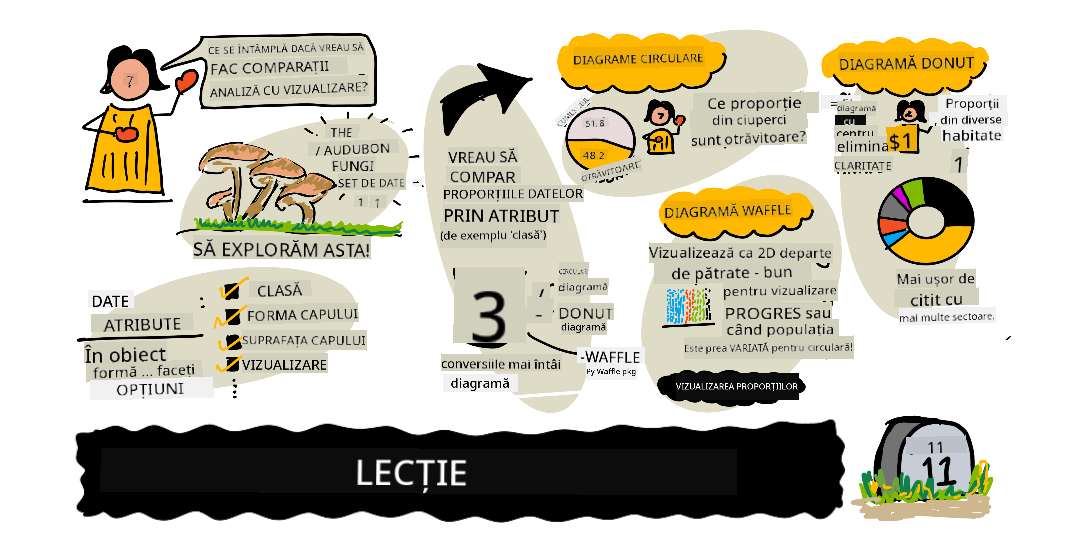 CE SE ÎNTÂMPLĂ DACĂ VREAU SĂ
FAC COMPARAȚII
ANALIZĂ CU VIZUALIZARE?
?
THE
/ AUDUBON
FUNGI
SET DE DATE
1 1
SĂ EXPLORĂM ASTA!
DATE
ATRIBUTE
În obiect
formă ... faceți
OPȚIUNI
CLASĂ
FORMA CAPULUI
SUPRAFAȚA CAPULUI
VIZUALIZARE
VREAU SĂ
COMPAR
PROPORȚIILE DATELOR
PRIN ATRIBUT
(de exemplu 'clasă')
3
CIRCULARE
diagramă
DONUT
diagramă
-WAFFLE
Py Waffle pkg
conversiile mai întâi
diagramă
DIAGRAME CIRCULARE
51.8
48.2
OTRĂVITOARE
Ce proporție
din ciuperci
sunt otrăvitoare?
DIAGRAMĂ WAFFLE
Vizualizează ca 2D departe
de pătrate - bun
pentru vizualizare
PROGRES sau
când populația
Este prea VARIATĂ pentru circulară!
VIZUALIZAREA PROPORȚIILOR
DIAGRAMĂ DONUT
diagramă
cu
centru
elimina
CLARITATE
$1
Proporții
din diverse
habitate
1
Mai ușor de
citit cu
mai multe sectoare.
LECȚIE
11
11